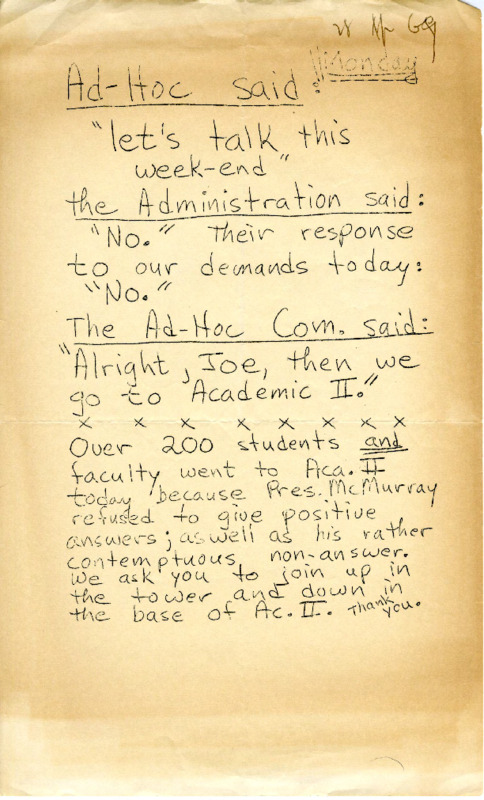 28 Ap 69
Monday
Ad-Hoc said:
"let's talk this
week-end"
the Administration said:
"No." Their response
to our demands today:
"No."
The Ad-Hoc Com. said:
"Alright, Joe, then we
go to Academic II."
x x x x x x x x
Over 200 students and
faculty went to Aca. II
today because Pres. McMurray
refused to give positive
answers; as well as his rather
contemptuous non-answer.
We ask you to join up in
the tower and down in
the base of Ac. II. Thank
you.